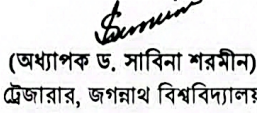 (অধ্যাপক ড. সাবিনা শরমীন)
ট্রেজারার, জগন্নাথ বিশ্ববিদ্যালয়